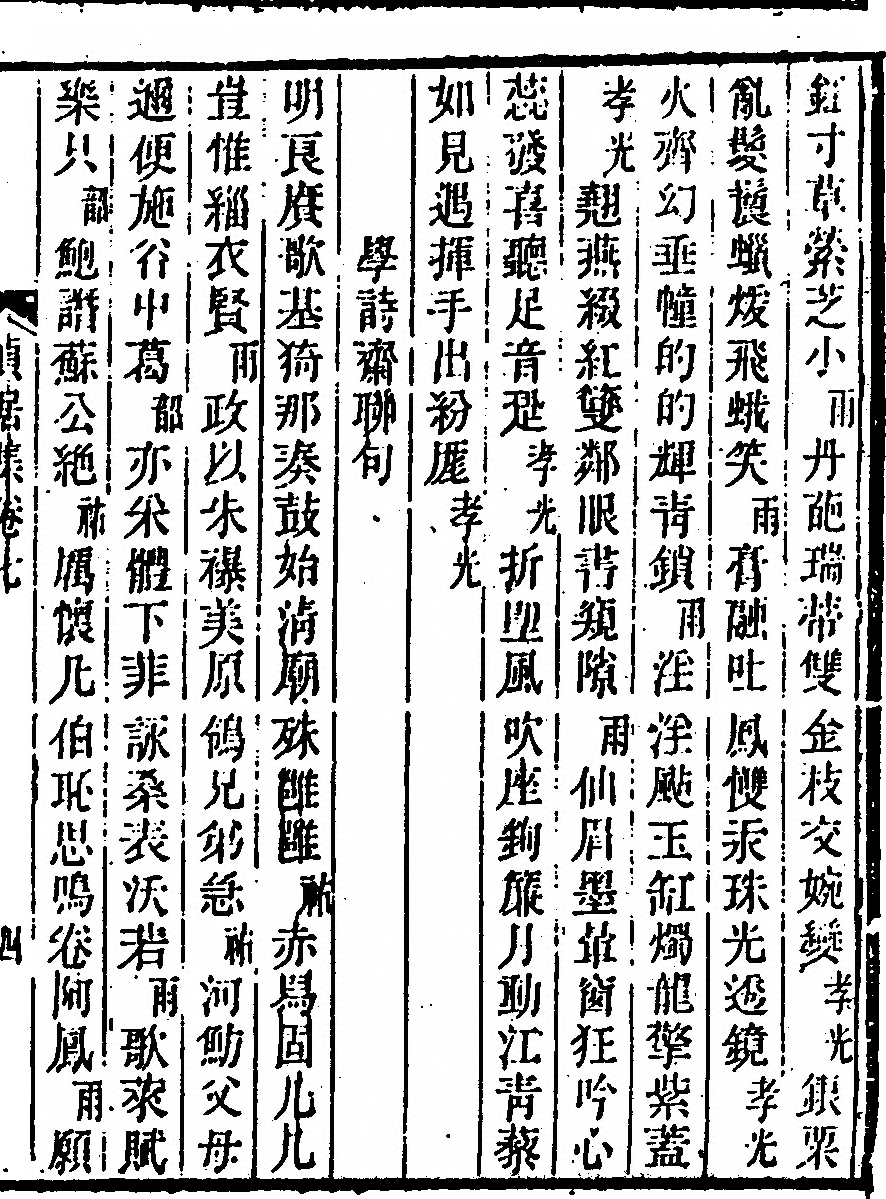 釭寸草縈芝小雨丹葩瑞蒂雙金枝交婉孌孝光銀粟
亂髮鬟蠟煖飛蛾笑雨膏融吐鳳慳汞珠光透鏡孝光
火齊幻垂幢的的輝青鎖雨淫淫颭玉缸燭龍擎紫蓋
孝光翹燕綴紅雙粲眼書窺隙雨仙眉墨黛窗狂吟心
蕊發喜聽足音跫孝光折塑風吹座銅簾月動江青藜
如見過揮手出粉厖孝光
學詩齋聯句
明良賡歌基猗那奏鼓始淸廟殊雝雝祐赤舄固几几
豈惟緇衣賢雨政以朱襮美原鴒兄弟急祐河魴父母
邇便施谷中葛韶亦采體下菲詠桑表沃若雨歌萊賦
樂只韶鮑譖蘇公絶祐厲懷凡伯恥思嗚卷阿鳳雨願
貞居集卷七
四